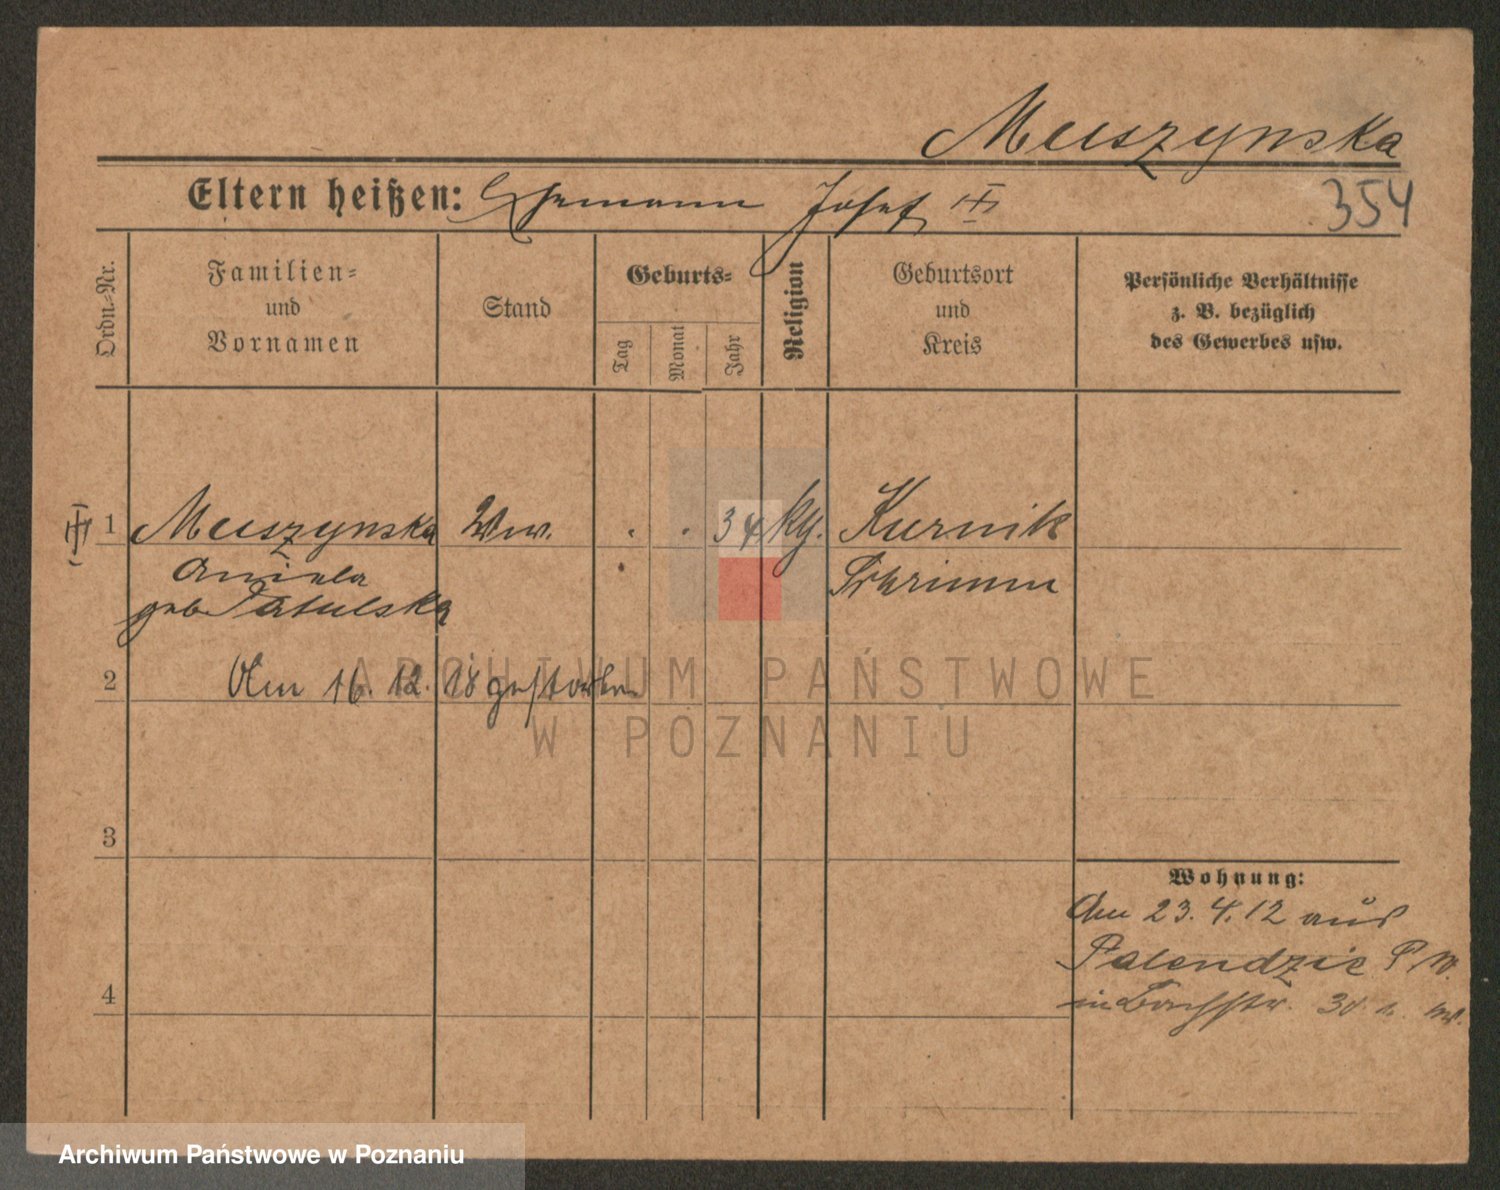 Muszynska
Eltern heißen: Ehemann Josef
354
Ordn.-Nr.
Familien-
und
Vornamen
Stand
Geburts-
Tag
Monat
Jahr
Religion
Geburtsort
und
Kreis
Persönliche Verhältnisse
z. B. bezüglich
des Gewerbes usw.
1 Muszynska Ww. . . 34 kg. Kurnik
Aniela Schrimm
geb Patulska
2 Am 16. 12. 18 gestorben
ARCHIWUM PAŃSTWOWE
W POZNANIU
3
Wohnung:
Am 23. 4. 12 aus
Palendzie P. W.
4
in Bachstr. 30
Archiwum Państwowe w Poznaniu